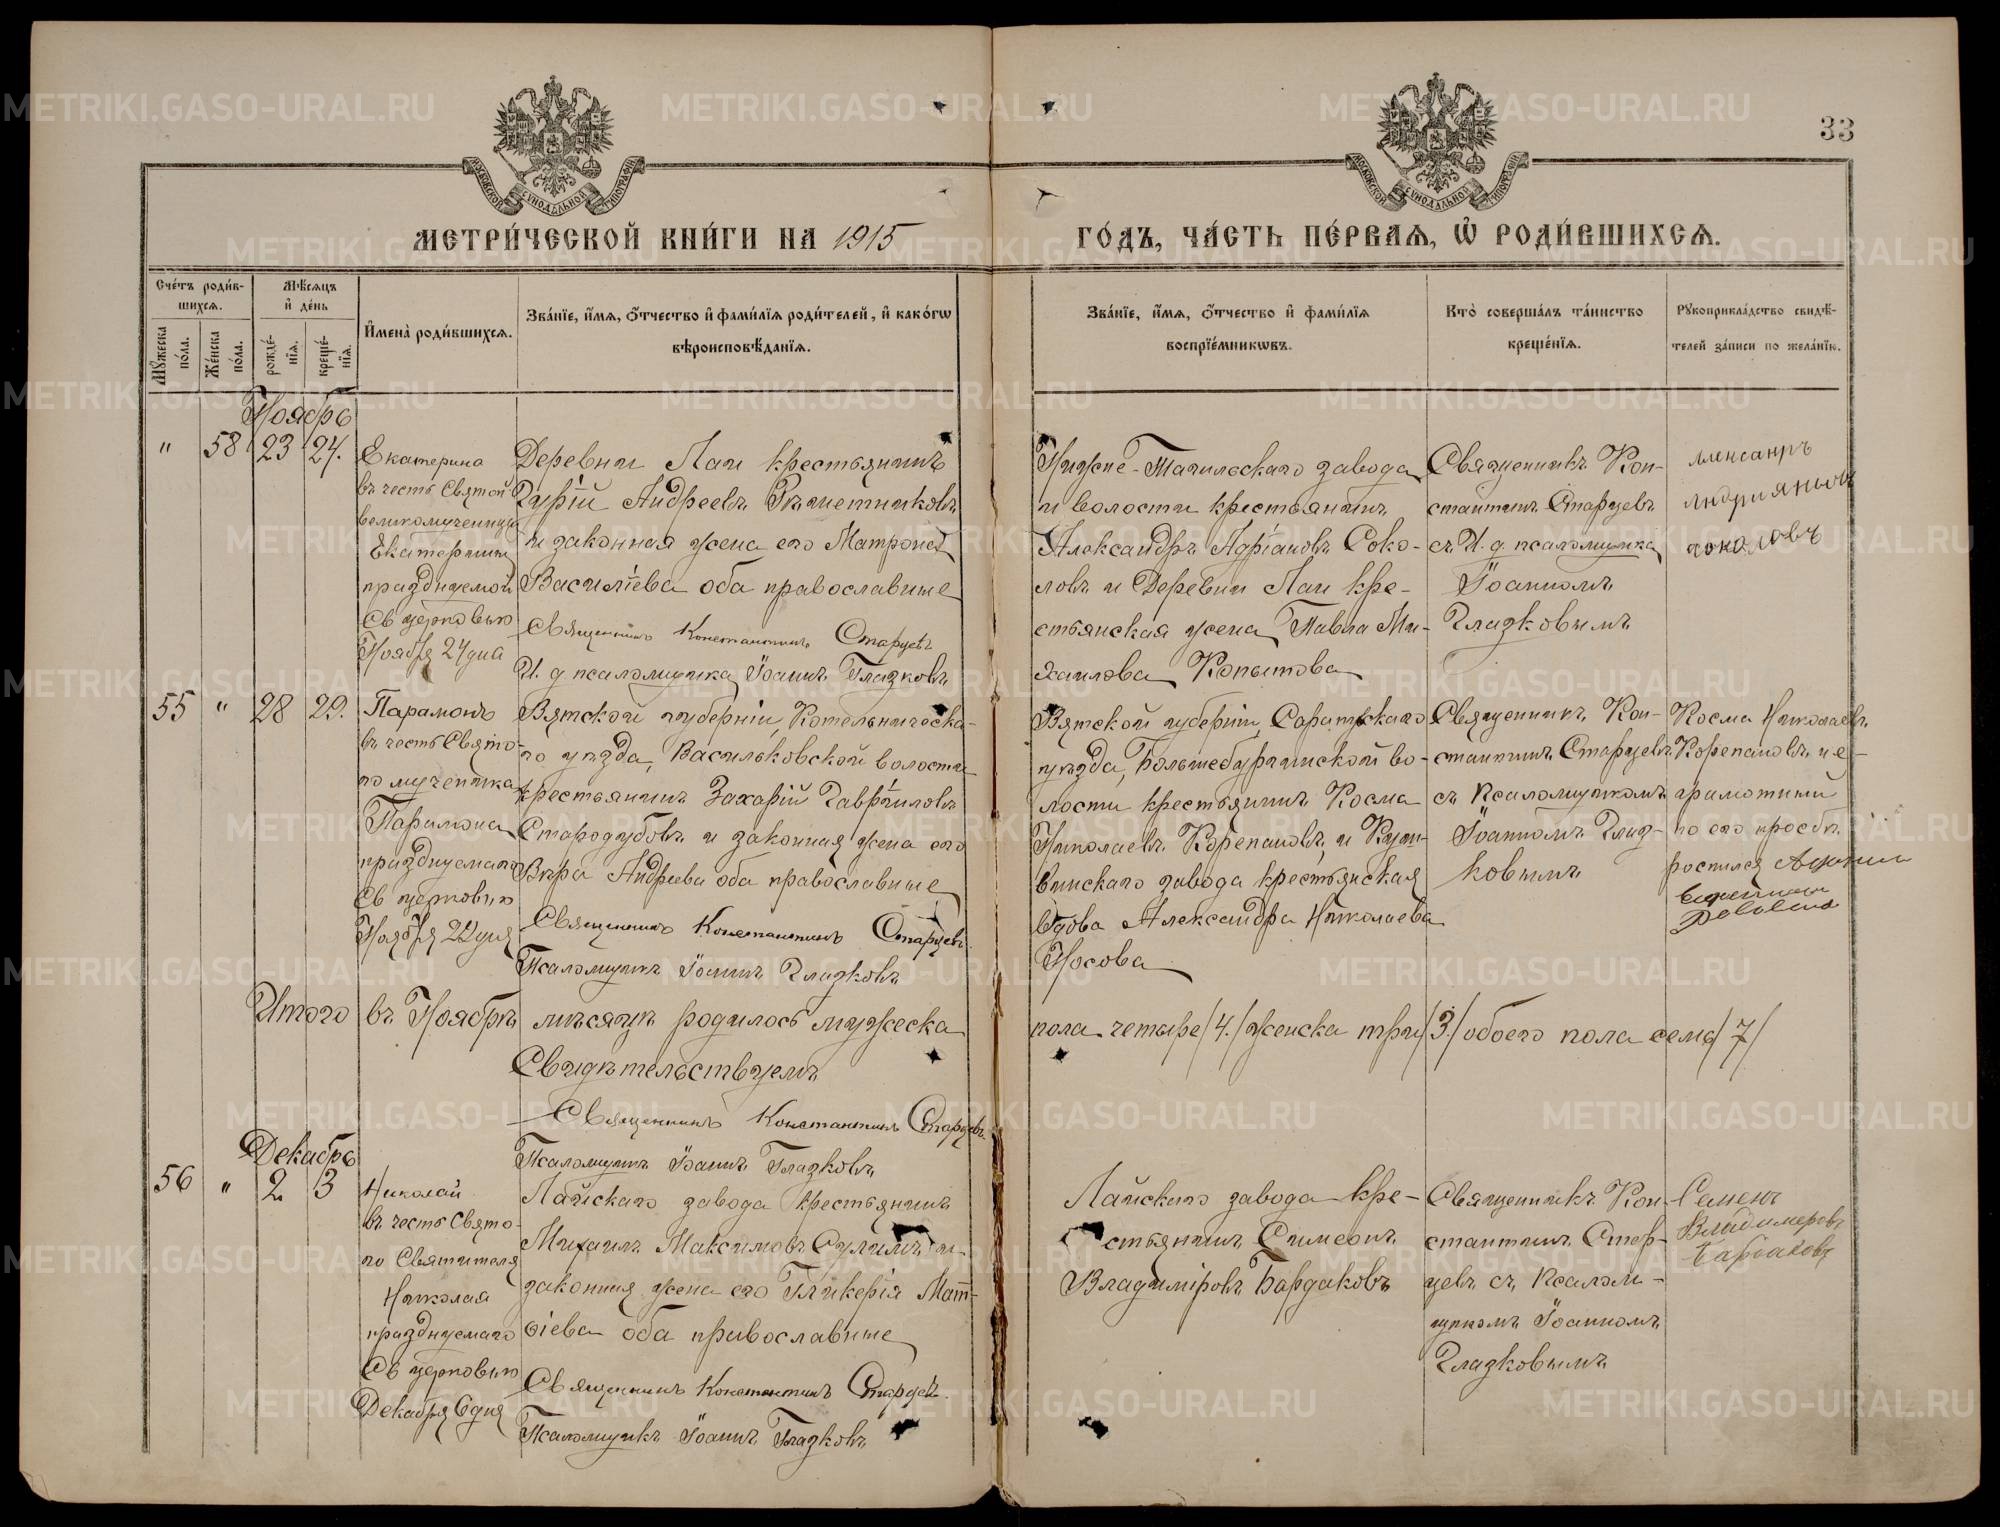 33
МЕТРИ́ЧЕСКОЙ КНИ́ГИ НА 1915 ГО́ДЪ, ЧА́СТЬ ПЕ́РВАѦ, Ѽ РОДИ́ВШИХСѦ.
Сче́тъ роди́в-
шихсѧ.
Мѣ́сѧцъ
и҆ де́нь
И҆мена̀ роди́вшихсѧ.
Зва́нїе, и҆́мѧ, ѻ҆́тчество и҆ фами́лїѧ роди́телей, и҆ како́гѡ
вѣроисповѣ́данїѧ.
Зва́нїе, и҆́мѧ, ѻ҆́тчество и҆ фами́лїѧ
воспрїе́мникѡвъ.
Кто̀ соверша́лъ та́инство
креще́нїѧ.
Рꙋкоприкла́дство свидѣ́-
телей за́писи по жела́нїю.
Мꙋ́жеска
по́ла.
Же́нска
по́ла.
рожде́-
нїѧ.
креще́-
нїѧ.
Ноябрь
" 58 23 24.
Екатерина
въ честь Святой
великомученицы
Екатерины
празднуемой
Св церковью
Ноября 24 дня
Деревни Лаи крестьянинъ
Гурій Андреевъ Рѣшетниковъ
и законная жена его Матрона
Василіева оба православные
Священникъ Константинъ Старцевъ
И. д псаломщика Іоаннъ Глазковъ
Нижне-Тагильскаго завода
и волости крестьянинъ
Александръ Адріановъ Соко-
ловъ и Деревни Лаи кре-
стьянская жена Павла Ми-
хаилова Копытова
Священникъ Кон-
стантинъ Старцевъ
съ И. д псаломщика
Іоанномъ
Глазковымъ
соколовъ
55 " 28 29.
Парамонъ
въ честь Свято-
го мученика
Парамона
празднуемаго
Св церковью
Ноября 29 дня
Вятской губерніи, Котельническа-
го уѣзда, Васильковской волости
крестьянинъ Захарій Гавріиловъ
Стародубовъ и законная жена его
Вѣра Андреева оба православные
Священникъ Константинъ Старцевъ
Псаломщикъ Іоаннъ Глазковъ
Вятской губерніи, Сарапульскаго
уѣзда, волости крестьянинъ Косма
Николаевъ Корепановъ и Куш-
винскаго завода крестьянская
вдова Александра Николаева
Носова
Священникъ Кон-
стантинъ Старцевъ
съ Псаломщикомъ
Іоанномъ Глаз-
ковымъ
Косма Николаевъ
Корепановъ, не-
грамотный
по его просьбѣ
Итого въ Ноябрѣ мѣсяцѣ родилось мужеска пола четыре /4./ женска три /3./ обоего пола семь /7/
Свидѣтельствуемъ
Священникъ Константинъ Старцевъ
Псаломщикъ Іоаннъ Глазковъ
Декабрь
56 " 2 3
Николай
въ честь Свято-
го Святителя
Николая
празднуемаго
Св церковью
Декабря 6 дня
Лайскаго завода крестьянинъ
Михаилъ Максимовъ и
законная жена его Гликерія Мат-
ѳіева оба православные
Священникъ Константинъ Старцевъ
Псаломщикъ Іоаннъ Глазковъ
Лайскаго завода кре-
стьянинъ Симеонъ
Владиміровъ Бардаковъ
Священникъ Кон-
стантинъ Стар-
цевъ съ Псалом-
щикомъ Іоанномъ
Глазковымъ
Семенъ
Владимеровъ
Бардаковъ
METRIKI.GASO-URAL.RU